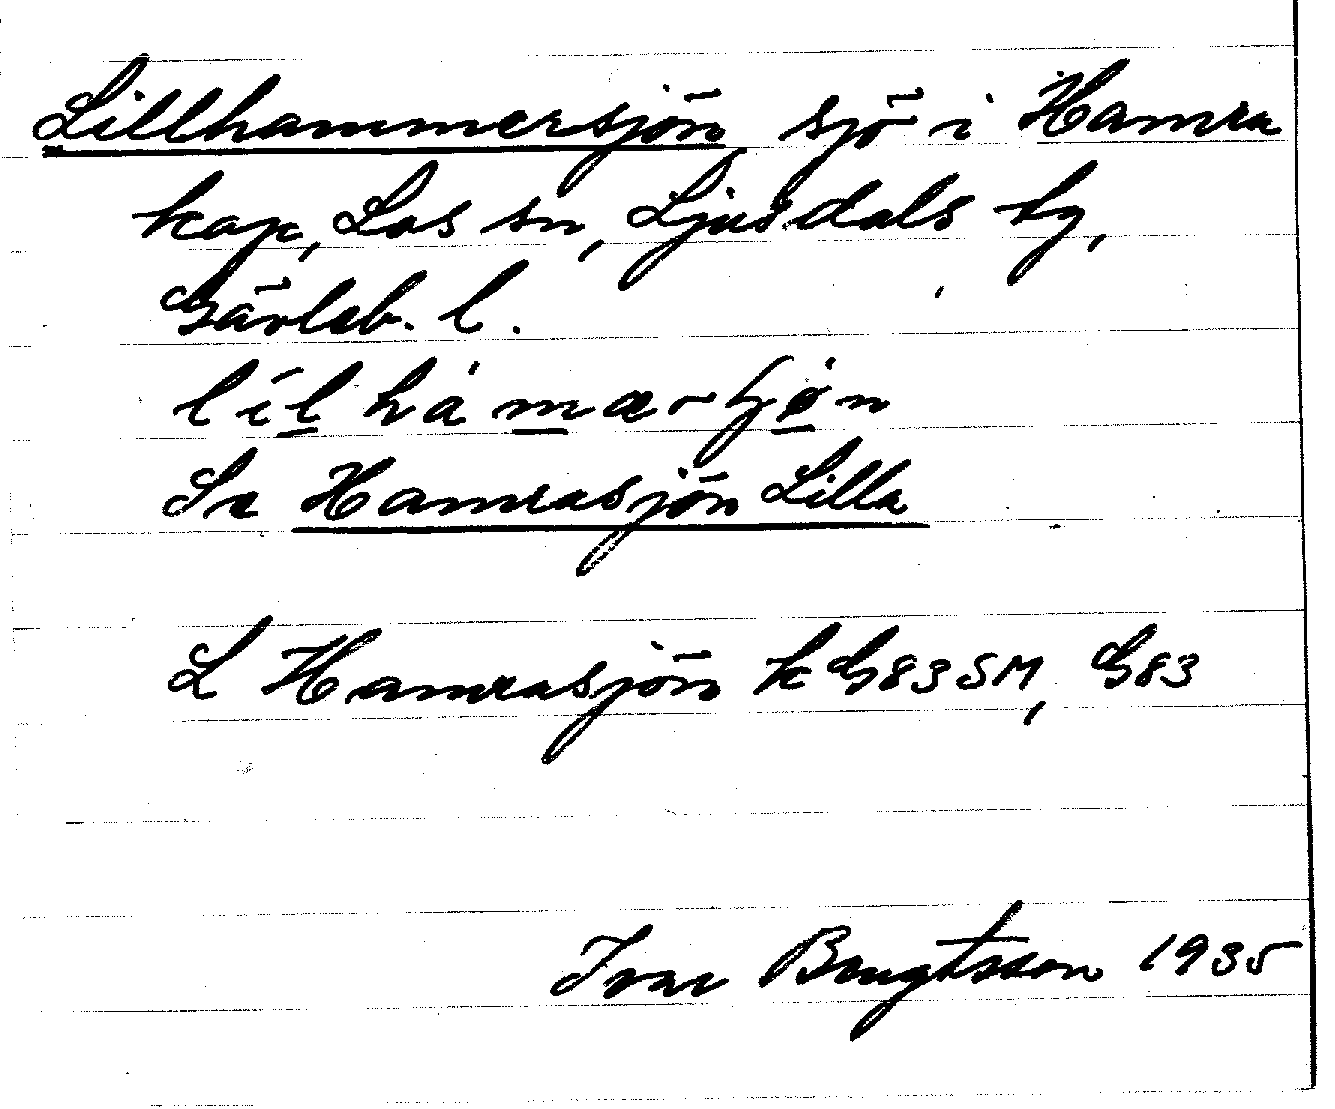 Lillhammersjön sjö i Hamra
kap, Los sn, Ljusdals tg,
Gävleb. l.
lílhàmærʃøn
Se Hamrasjön Lilla
L Hamrasjön k G83SM, G83
Ivar Bengtsson 1935